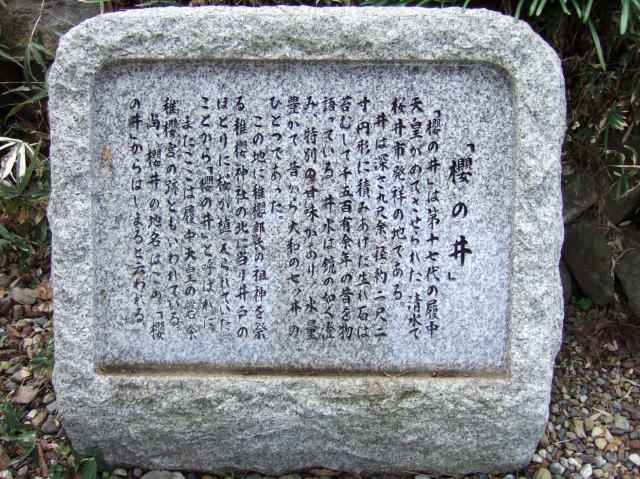 「櫻の井」
「櫻の井」は第十七代の履中
天皇がめでさせられた清水で
桜井市発祥の地である。
井は深さ九尺余、径約二尺二
寸円形に積みあげた生れ石は
苔むして千五百有余年の昔を物
語っている。井水は鏡の如く澄
み、特別の甘味があり、水量
豊かで、昔から大和の七ツ井の
ひとつであった。
この地に稚櫻部氏の祖神を祭
る稚櫻神社の北に当り井戸の
ほとりに桜が植えられていた
ことから「櫻の井」と呼ばれた。
またここは履中天皇の磐余
稚櫻宮の跡ともいわれている。
尚、櫻井の地名はこの「櫻
の井」からはじまると云われる。